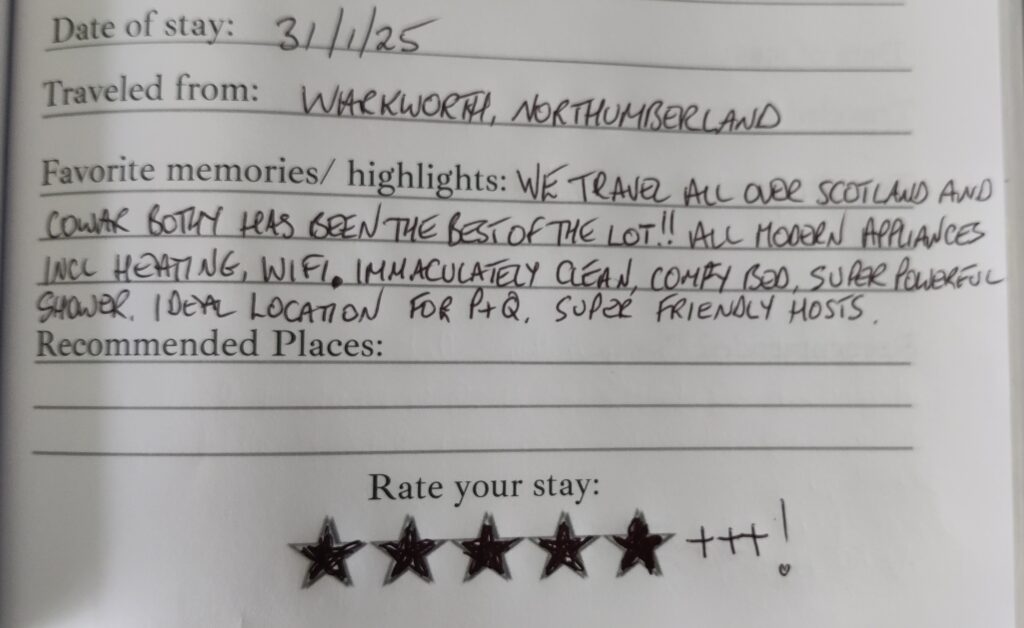 Date of stay: 31/1/25
Traveled from: WARKWORTH, NORTHUMBERLAND
Favorite memories/ highlights: WE TRAVEL ALL OVER SCOTLAND AND
COWAR BOTHY HAS BEEN THE BEST OF THE LOT!! ALL MODERN APPLIANCES
INCL HEATING, WIFI. IMMACULATELY CLEAN, COMFY BED, SUPER POWERFUL
SHOWER. IDEAL LOCATION FOR P+Q. SUPER FRIENDLY HOSTS.
Recommended Places:
Rate your stay:
+++!